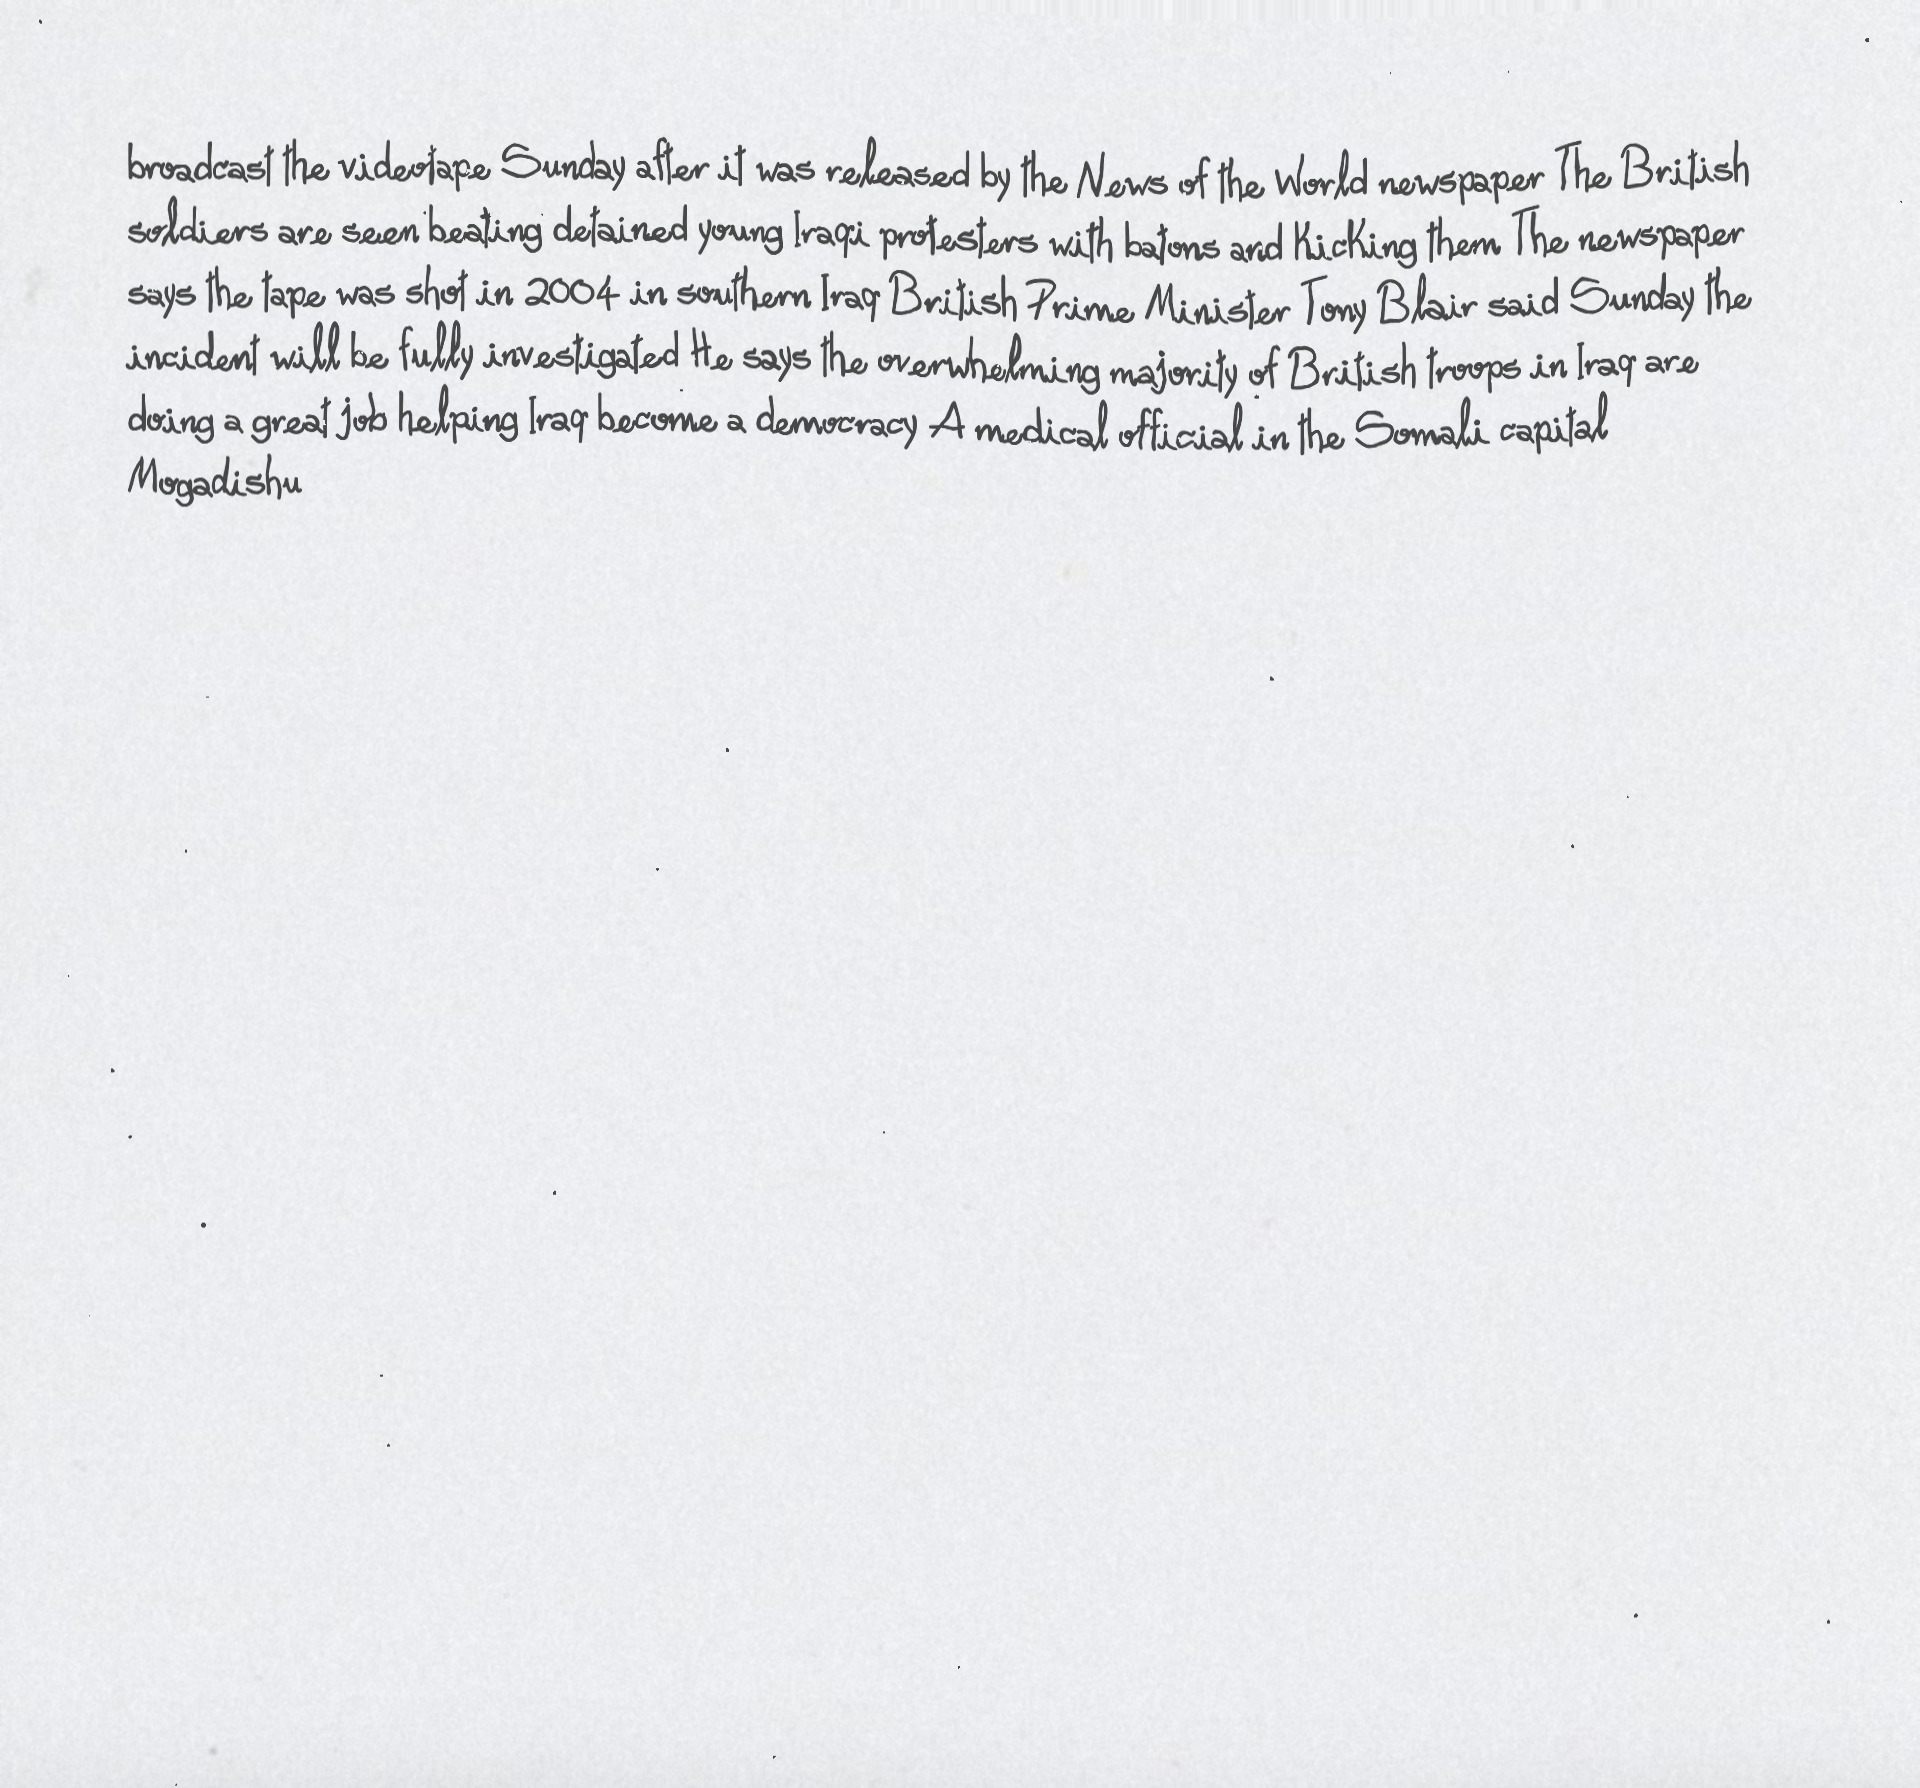 broadcast the videotape Sunday after it was released by the News of the World newspaper The British
soldiers are seen beating detained young Iraqi protesters with batons and kicking them The newspaper
says the tape was shot in 2004 in southern Iraq British Prime Minister Tony Blair said Sunday the
incident will be fully investigated He says the overwhelming majority of British troops in Iraq are
doing a great job helping Iraq become a democracy A medical official in the Somali capital
Mogadishu